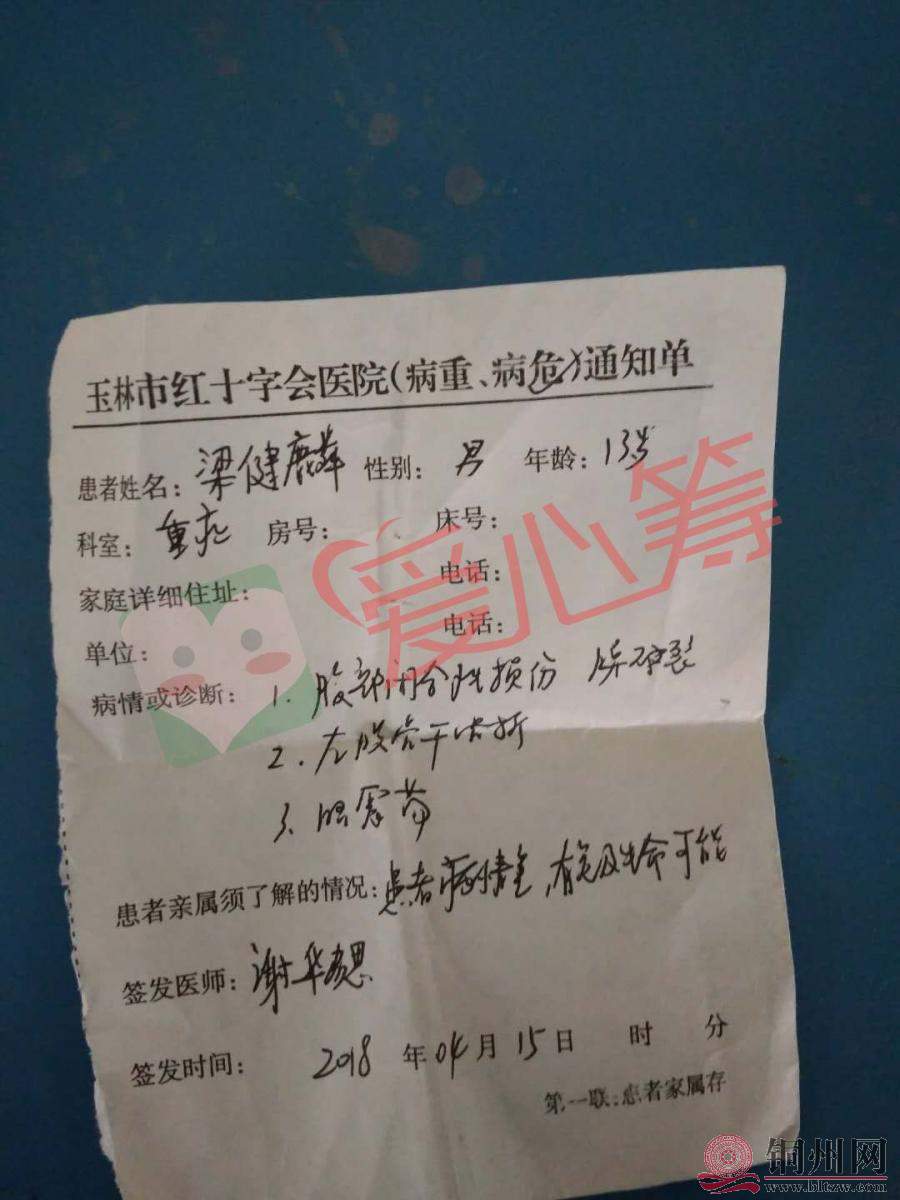 玉林市红十字会医院(病重、病危)通知单
患者姓名: 梁健麟 性别: 男 年龄: 13岁
科室: 重症 房号: 床号:
家庭详细住址: 电话:
单位: 电话:
病情或诊断: 1. 腹部闭合性损伤 脾破裂
2. 左股骨干骨折
3. 脑震荡
患者亲属须了解的情况: 患者病情重,有危及生命可能
签发医师: 谢华
签发时间: 2018 年 04 月 15 日 时 分
第一联:患者家属存
爱心筹
铜州网
www.bltzw.com